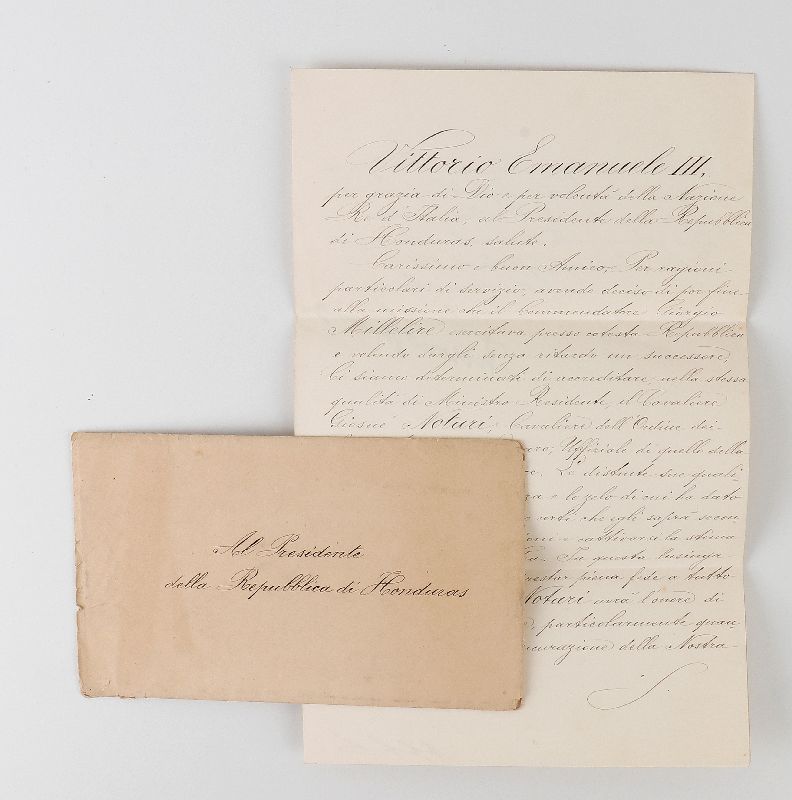 Vittorio Emanuele III.
per grazia di Dio e per volontà della Nazione
Re d'Italia, al Presidente della Repubblica
di Honduras, salute.
Carissimo e buon Amico, Per ragioni
particolari di servizio, avendo deciso di por fine
alla missione che il Commendatore Giorgio
Millelire esercitava presso cotesta Repubblica
e volendo dargli senza ritardo un successore,
Ci siamo determinati di accreditare nella stessa
qualità di Ministro Residente, il Cavaliere
Giosuè Notari, Cavaliere dell'Ordine dei
Uffiziale di quello della
Le distinte sue quali-
e lo zelo di cui ha dato
certi che egli saprà secon-
e cattivarsi la stima
In questa lusinga
prestar piena fede a tutto
Notari avrà l'onore di
particolarmente quan
della Nostra
Al Presidente
della Repubblica di Honduras